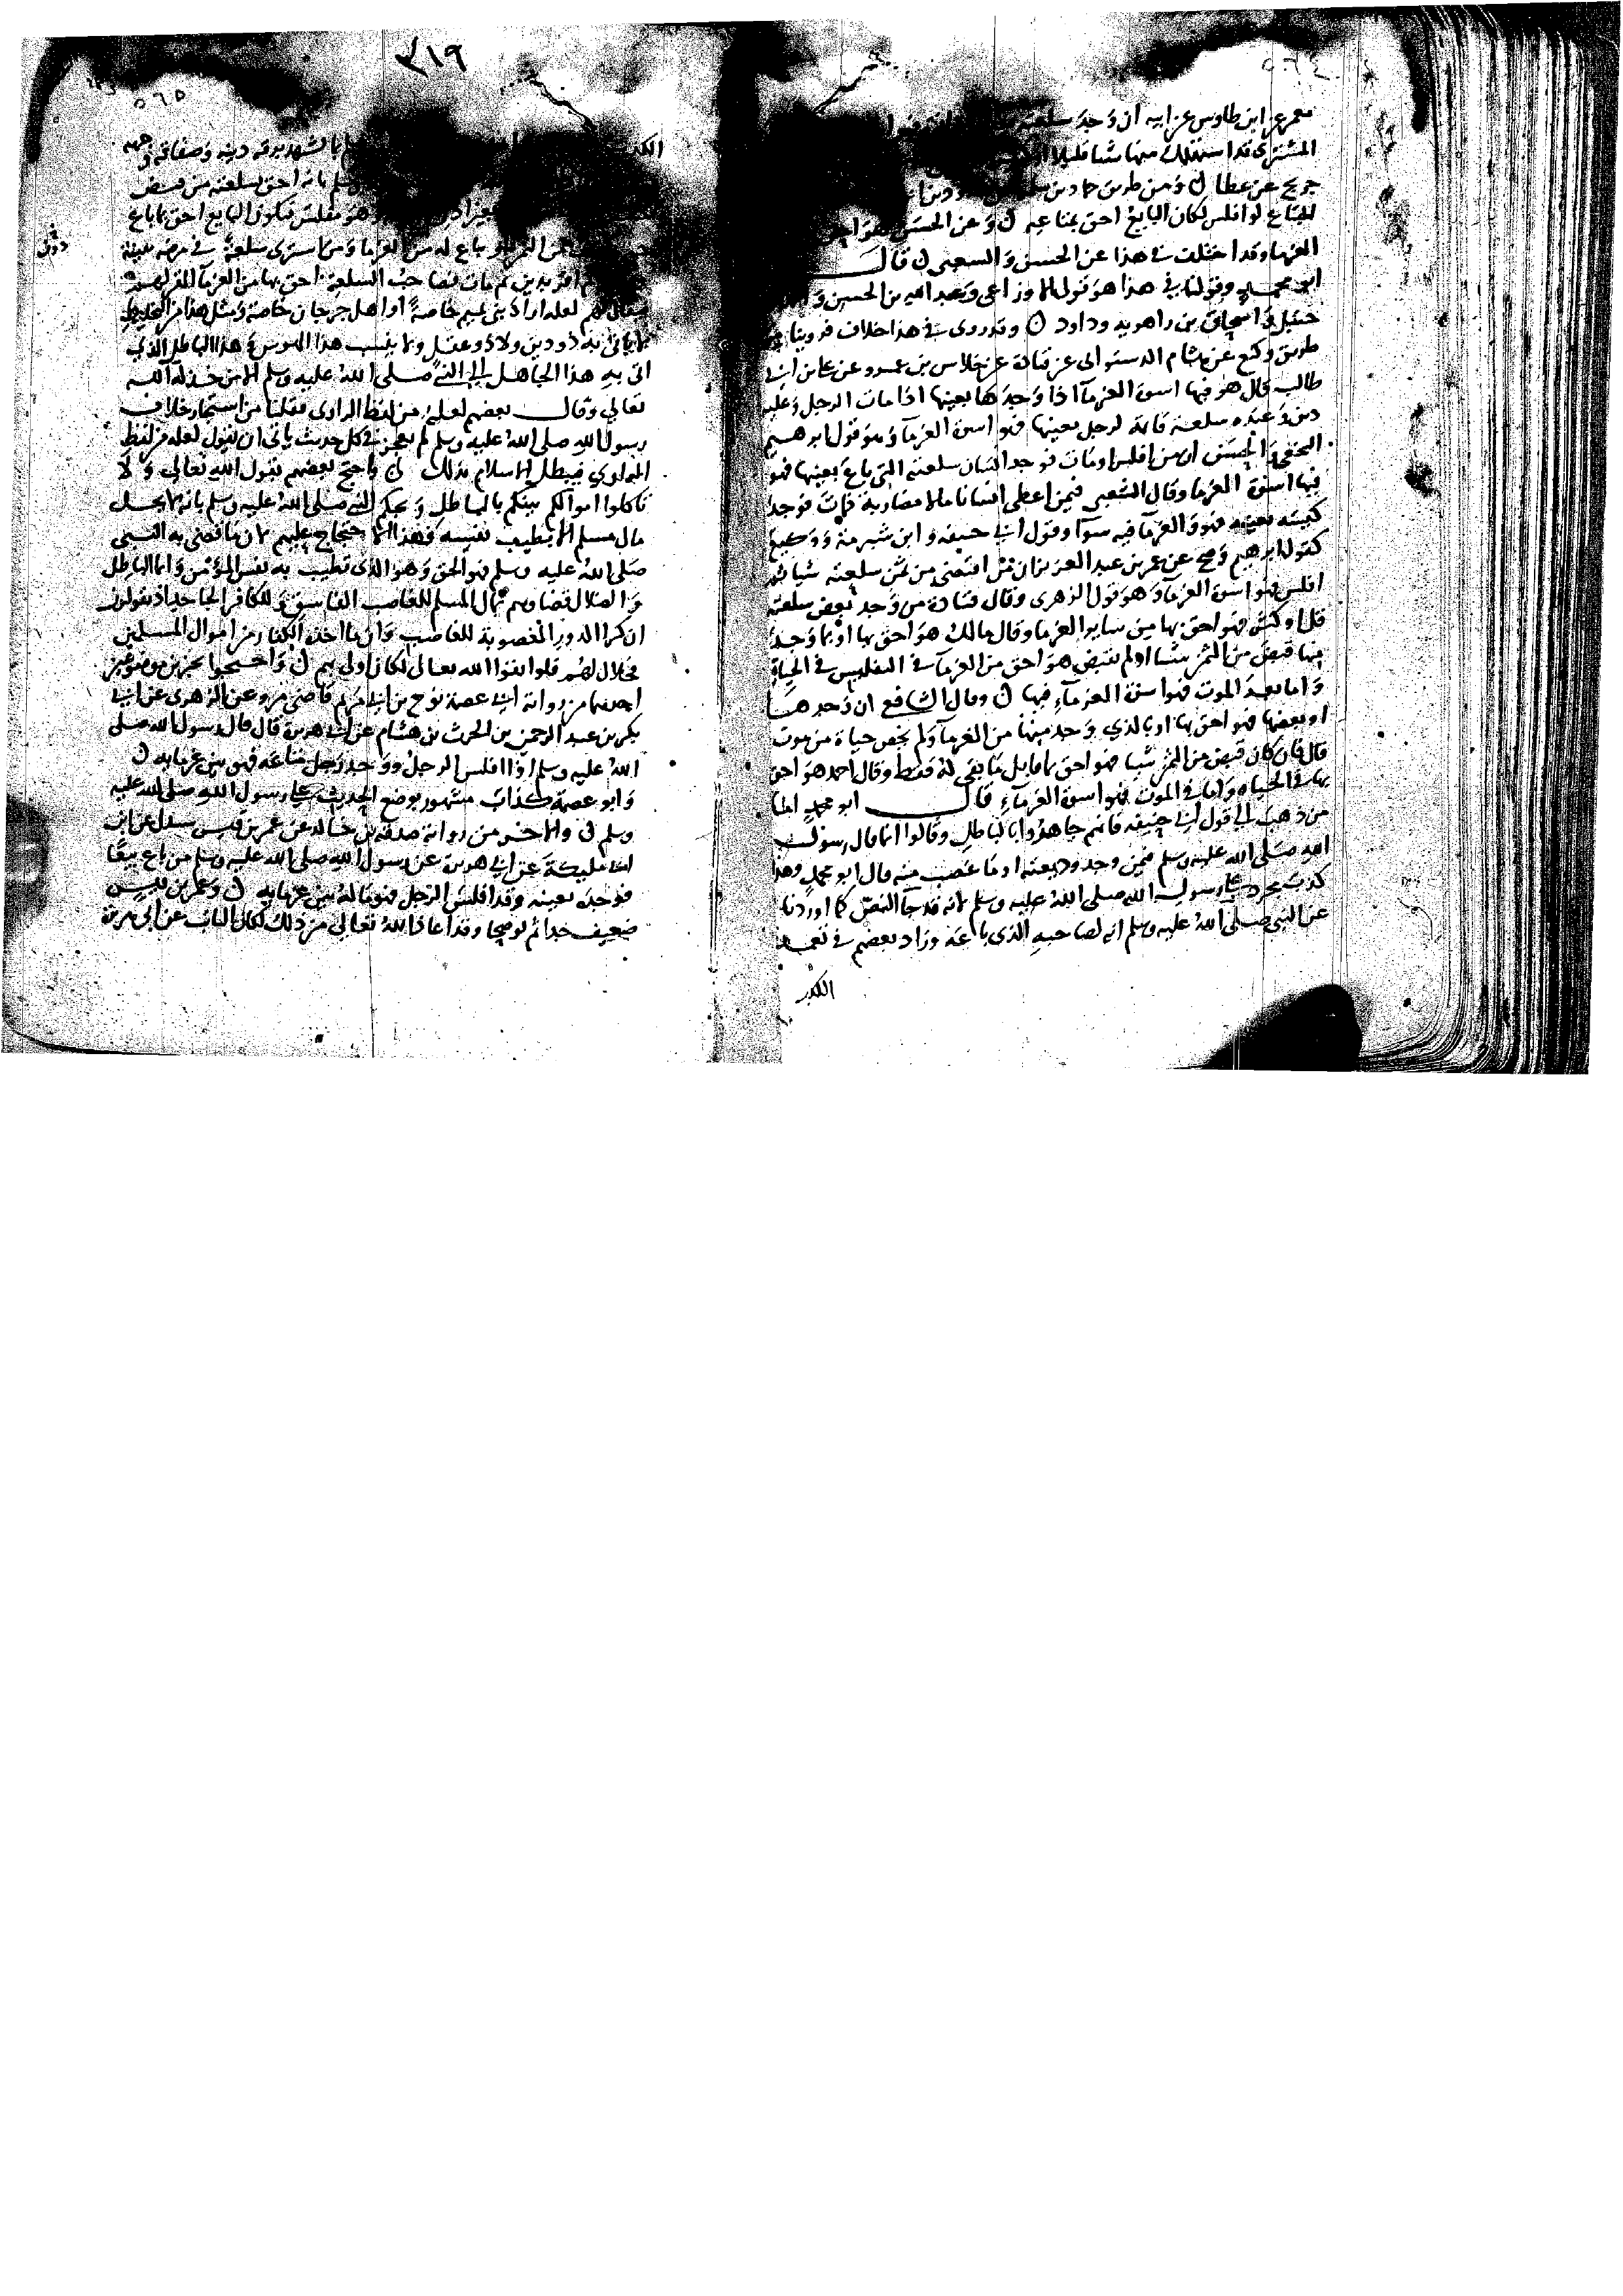 معمر عن ابن طاوس عن ابيه ان وجد سلعته
المشترى قد استهلك منها شيا قليلا
جريج عن عطا ومن طريق حماد بن
المتاع لو افلس لكان البايع احق بمتاعه وعن الحسن هو احق
الغرما وقد اختلف في هذا عن الحسن والشعبى قال
ابو محمد وقولنا في هذا هو قول الاوزاعى وعبد الله بن الحسن و
حنبل واسحاق بن راهويه وداود وقد روى في هذا خلاف فروينا من
طريق وكيع عن هشام الدستوائى عن قتادة عن خلاس بن عمرو عن على بن ابى
طالب قال هو فيها اسوة الغرمآ اذا وجدها بعينها اذا مات الرجل وعليه
دين وعنده سلعة قائمة لرجل بعينها فهو اسوة الغرمآ وهو قول ابرهيم
النخعى والحسن ان من افلس او مات فوجد انسان سلعته التى باع بعينها فهو
فيها اسوة الغرما وقال الشعبى فيمن اعطى انسانا مالا مضاربة فمات فوجد
كيسه بعينه فهو والغرمآ فيه سوآ وقول ابى حنيفه وابن شبرمة ووكيع
كقول ابرهيم وصح عن عمر بن عبد العزيز ان من اقتضى من ثمن سلعته شيا ثم
افلس فهو اسوة الغرمآ وهو قول الزهرى وقال قتادة من وجد بعض سلعته
قل او كثر فهو احق بها من ساير الغرما وقال مالك هو احق بها او بما وجد
منها قبض من الثمن شيا او لم يقبض هو احق من الغرمآ في التفليس في الحياة
واما بعد الموت فهو اسوة الغرمآء فيها وقال الشافعى ان وجدها
او بعضها فهو احق بها او بالذي وجد منها من الغرمآ ولم يخص حياة من موت
قال فان كان قبض من الثمن شيا فهو احق بما قابل ما بقى له فقط وقال احمد هو احق
بها في الحياه واما في الموت فهو اسوة الغرمآء قال ابو محمد اما
من ذهب الى قول ابى حنيفه فانهم جاهروا بالباطل وقالوا انما قال رسول
الله صلى الله عليه وسلم فيمن وجد وديعته او ما غصب منه قال ابو محمد وهذا
كذب مجرد على رسول الله صلى الله عليه وسلم لانه قد جآ النص كما اوردنا
عن النبى صلى الله عليه وسلم انه لصاحبه الذى باعه وزاد بعضهم في
الكذب
٣١٩
٥٦٥
الكذب بالشهد برقه دينه وصفاقه وجهه
بانه احق بسلعته من قبض
وهو مفلس فيكون البايع احق بما باع
باع له من الغرما ومن اشترى سلعة في مرضه ببينة
اقر بدين ثم مات فصاحب السلعة احق بها من الغرمآ المقر لهم
فيقال لهم لعله اراد بنى تميم خاصة او اهل جرجان خاصة ومثل هذا من التخليط
لا يأتى به ذو دين ولا ذو عقل ولا ينسب هذا الهوس وهذا الباطل الذى
اتى به هذا الجاهل الى النبى صلى الله عليه وسلم الا من خذله الله
تعالى وقال بعضهم لعله من لفظ الراوى فقلنا من استجاز خلاف
رسول الله صلى الله عليه وسلم لم يعجز في كل حديث ياتى ان يقول لعله من لفظ
الراوى فيبطل الاسلام بذلك واحتج بعضهم بقول الله تعالى ولا
تاكلوا اموالكم بينكم بالباطل وبحكم النبى صلى الله عليه وسلم بانه لا يحل
مال مسلم الا بطيب نفسه وهذا الاحتجاج عليهم لان ما قضى به النبى
صلى الله عليه وسلم فهو الحق وهو الذى تطيب به نفس المؤمن واما الباطل
والضلال فقضاوهم بمال المسلم للغاصب الفاسق وللكافر الجاحد اذ يقولون
ان كرا الدور المغصوبة للغاصب وان ما اخذه الكفار من اموال المسلمين
حلال لهم فلو اتقوا الله تعالى لكان اولى بهم واحتجوا بخبرين موضوعين
احدهما من رواية ابى عصمة نوح بن ابى مريم قاضى مرو عن الزهرى عن ابى
بكر بن عبد الرحمن بن الحرث بن هشام عن ابى هريرة قال قال رسول الله صلى
الله عليه وسلم اذا افلس الرجل ووجد رجل متاعه فهو بين غرمايه
وابو عصمة كذاب مشهور بوضع الحديث على رسول الله صلى الله عليه
وسلم والاخر من رواية صدقه بن خالد عن عمر بن قيس سندل عن ابن
ابى مليكة عن ابى هريرة عن رسول الله صلى الله عليه وسلم من باع بيعا
فوجده بعينه وقد افلس الرجل فهو ماله بين غرمايه وعمر بن قيس
ضعيف جدا ثم لو صحا وقد اعاذ الله تعالى من ذلك لكان الثابت عن ابى هريرة